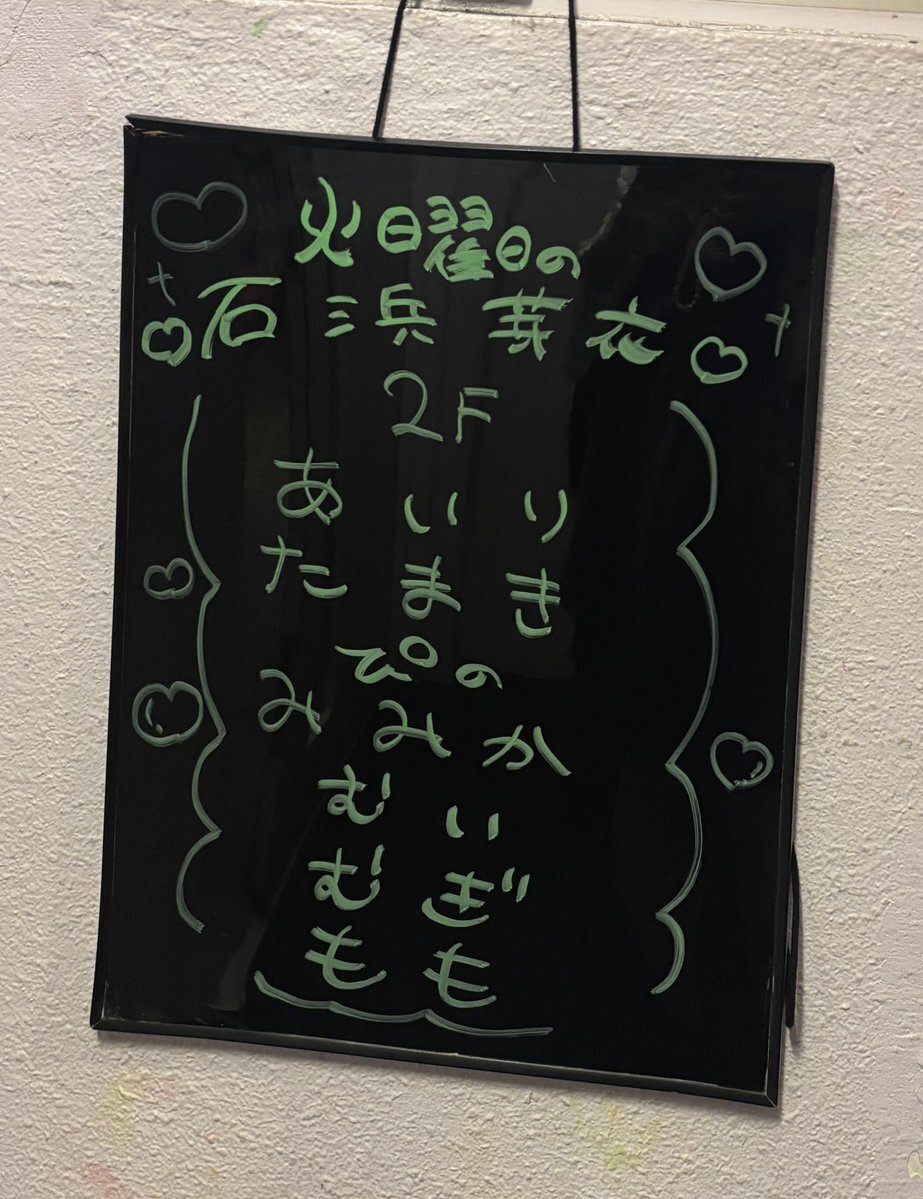 火曜日の
石浜芽衣
2F
あいり
たまき
ぴの
みみか
むい
むぎ
もも